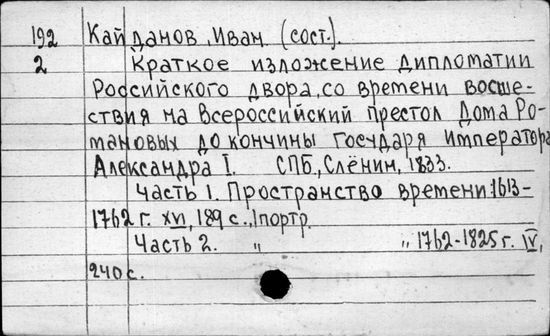 192 Кайданов, Иван. (сост.).
2 Краткое изложение дипломатии
Российского двора, со времени восше-
ствия на Всероссийский престол Дома Ро-
мановых до кончины Государя Императора
Александра I. СПБ., Слёнин, 1833.
Часть 1. Пространство времени: 1613-
1762 г. XVI, 189 с., 1 портр.
Часть 2. " " 1762-1825 г. IV,
240 с.